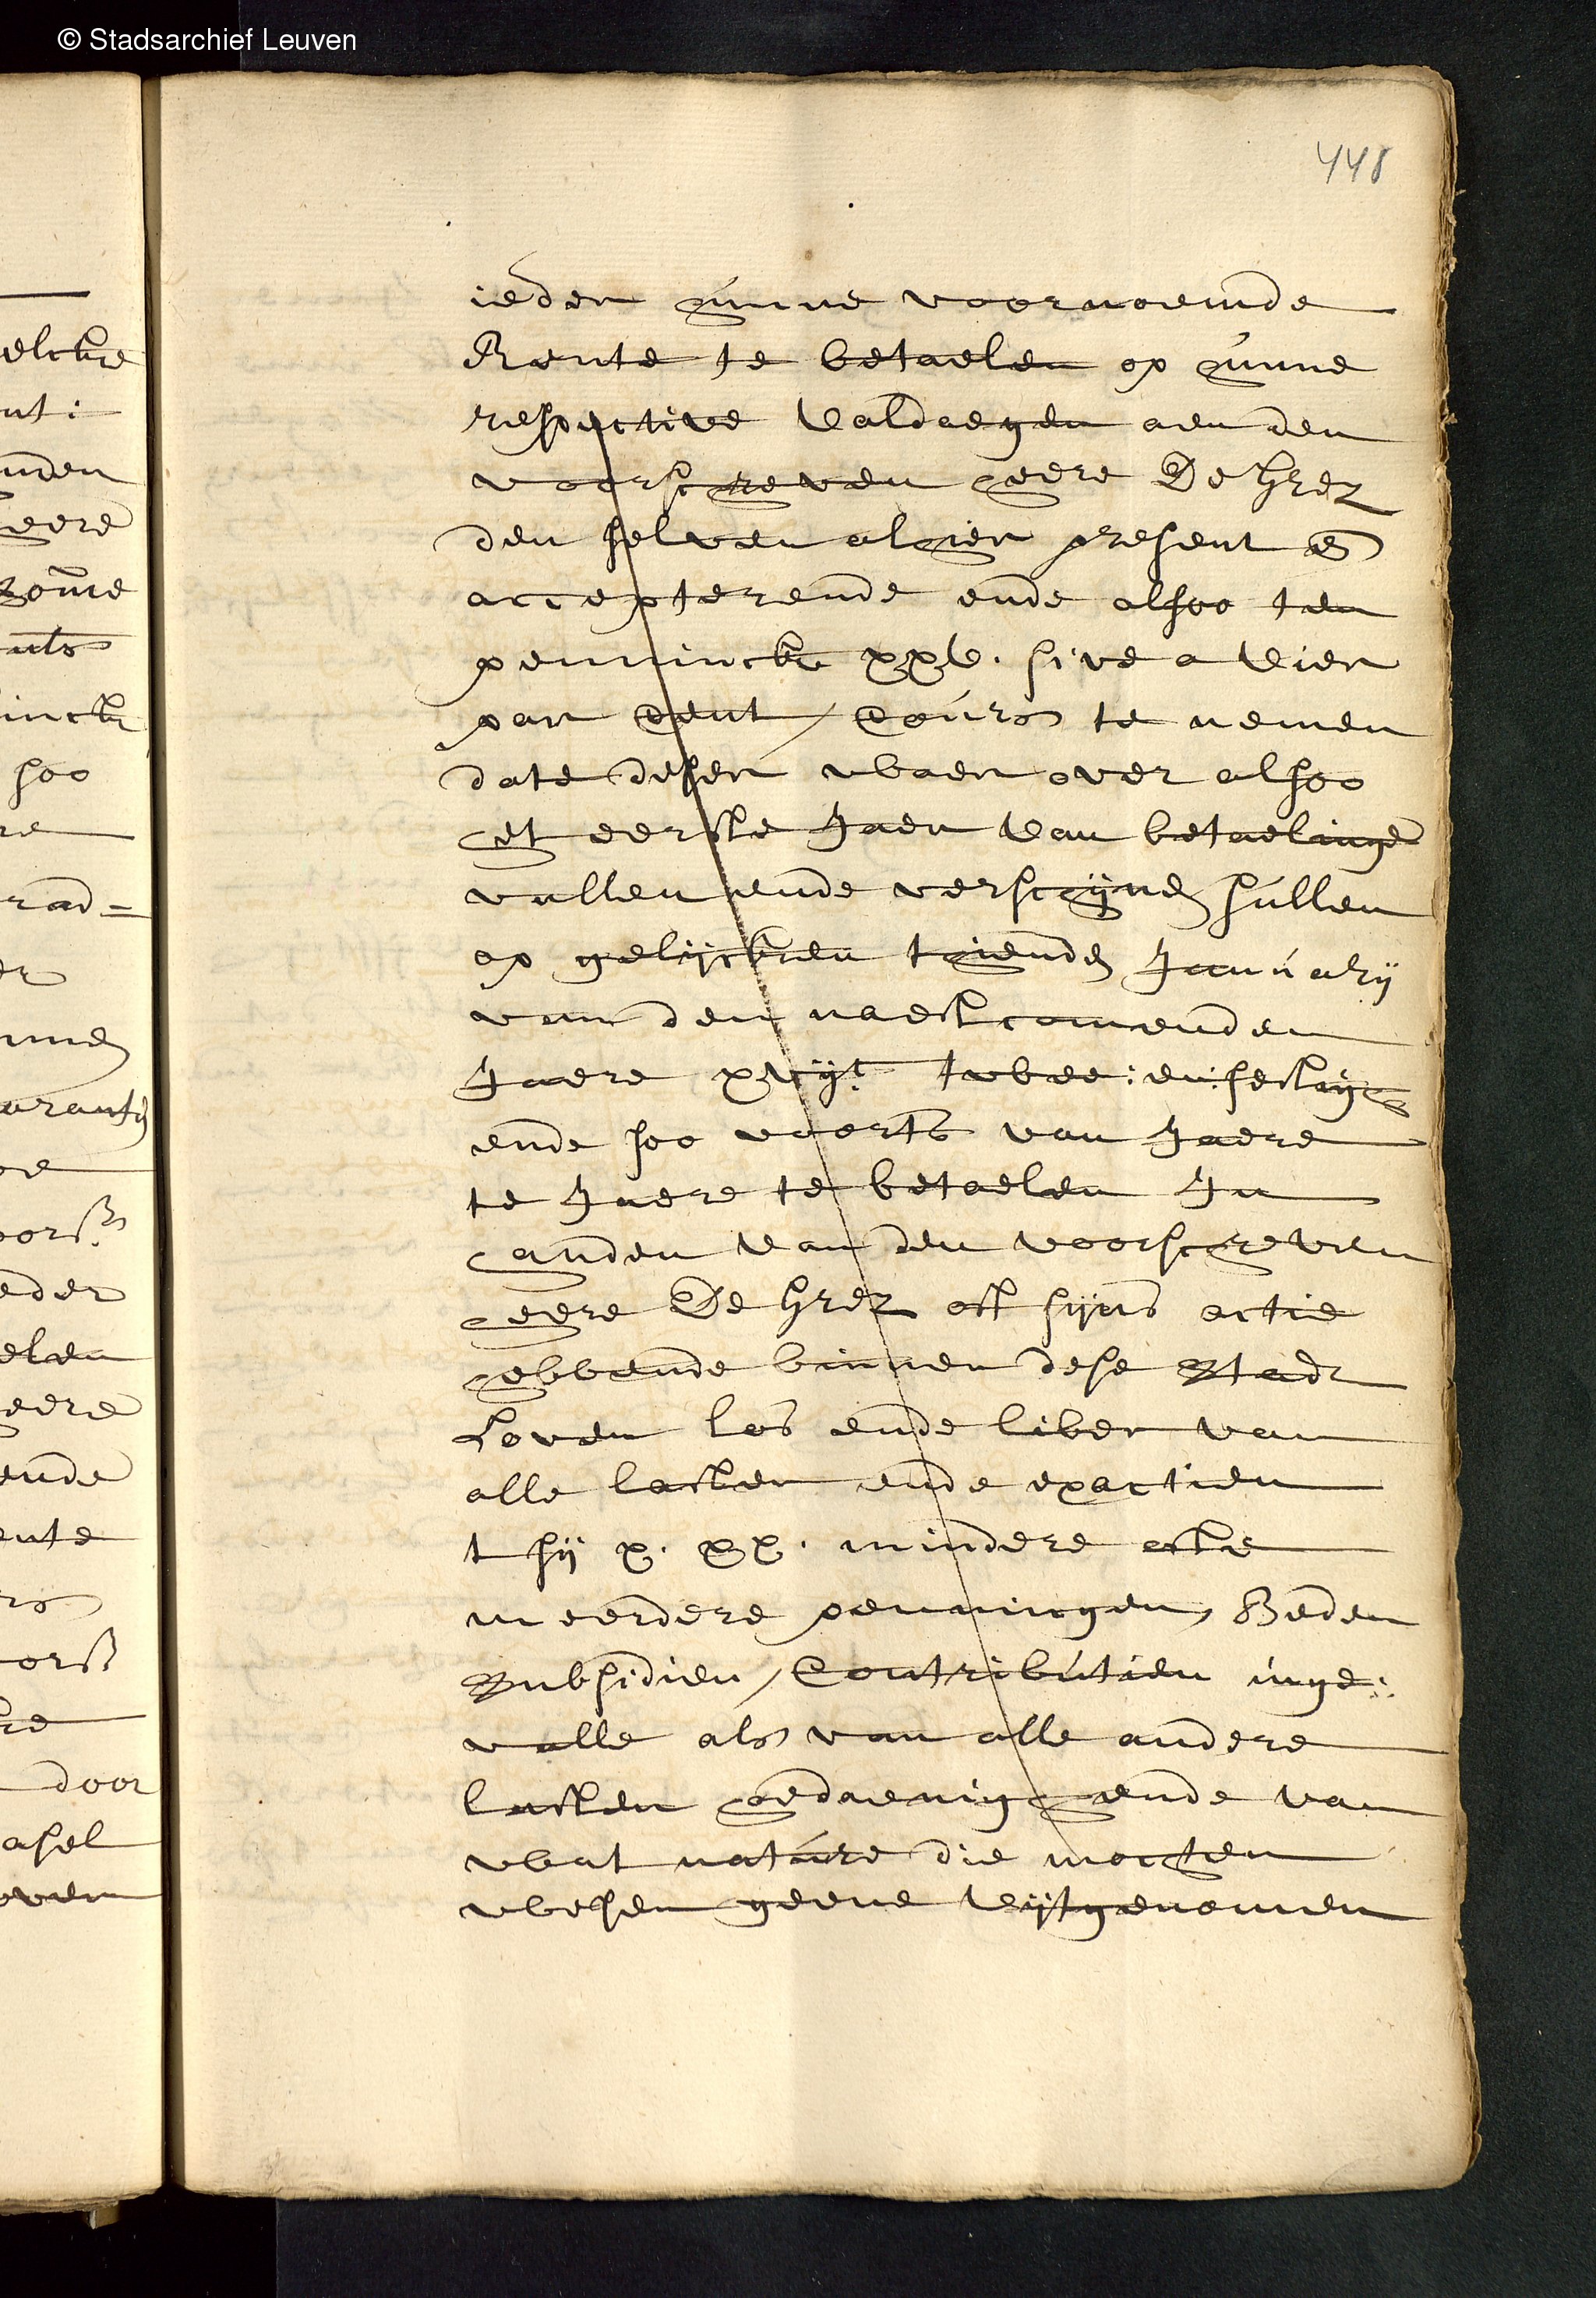 © Stadsarchief Leuven
448
ieder hunne voornoemde
Rente te betaelen op hunne
respective valdaegen aen den
voorschreven heere De Herz
den selven alhier present en
accepterende ende alsoo ten
penninck xxv. sive a vier
par Cent / Cours te nemen
date deser waer over alsoo
het eerste Jaer van betaelinge
vallen ende verschynen sullen
op gelijcken thienden January
van den naestcomenden
Jaere xvijc twee: en sestigh
ende soo voorts van Jaere
te Jaere te betaelen In
handen van den voorschreven
heere De Herz oft syns actie
hebbende binnen dese Stadt
Loven los ende liber van
alle lasten ende exactien
t sy x. xx. mindere ofte
meerdere penningen, Beden
Subsidien / Contributien inge:
valle als van alle andere
lasten hoedaenigh ende van
wat nature die mochten
wesen geene vuytgenomen
elcke
nt:
nden
heere
inck
soo
re
rad=
der
elen
heere
ende
ente
door
asel
oven